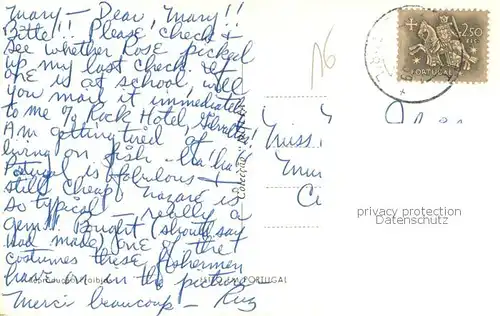 Mary — Dear, Mary!!
Bitte!! Please check &
see whether Rose picked
up my last check. If
one is at school, will
you mail it immediately
to me % Rock Hotel, Gibraltar!
Am getting tired of
living on fish - ha! ha!
Portugal is fabulous &
still cheap. Nazaré is
so typical — really a
gem!! Bought (should say
had made) one of the
costumes these fishermen
have on on the picture.
Merci beaucoup —
16
2$50
PORTUGAL
Miss.
Colecção
privacy protection
Datenschutz
PORTUGAL